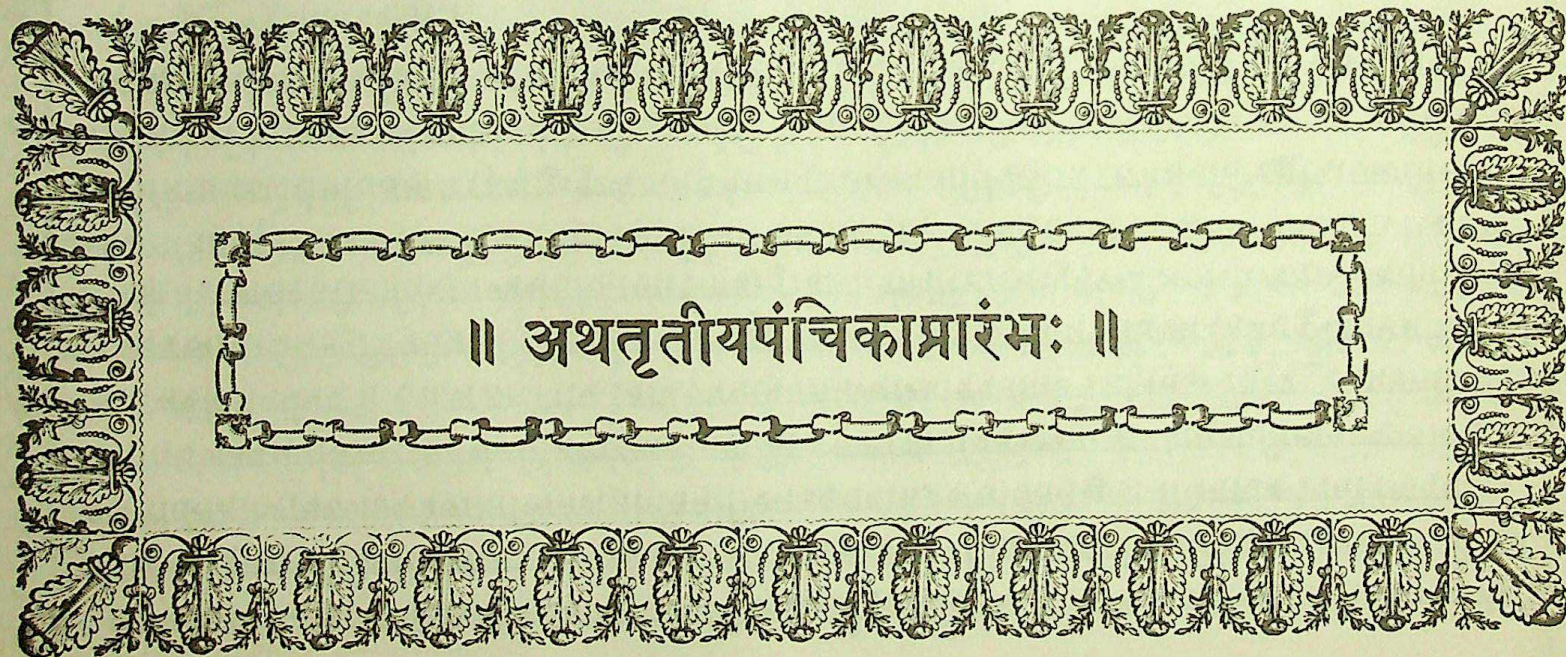 ॥ अथतृतीयपंचिकाप्रारंभः ॥